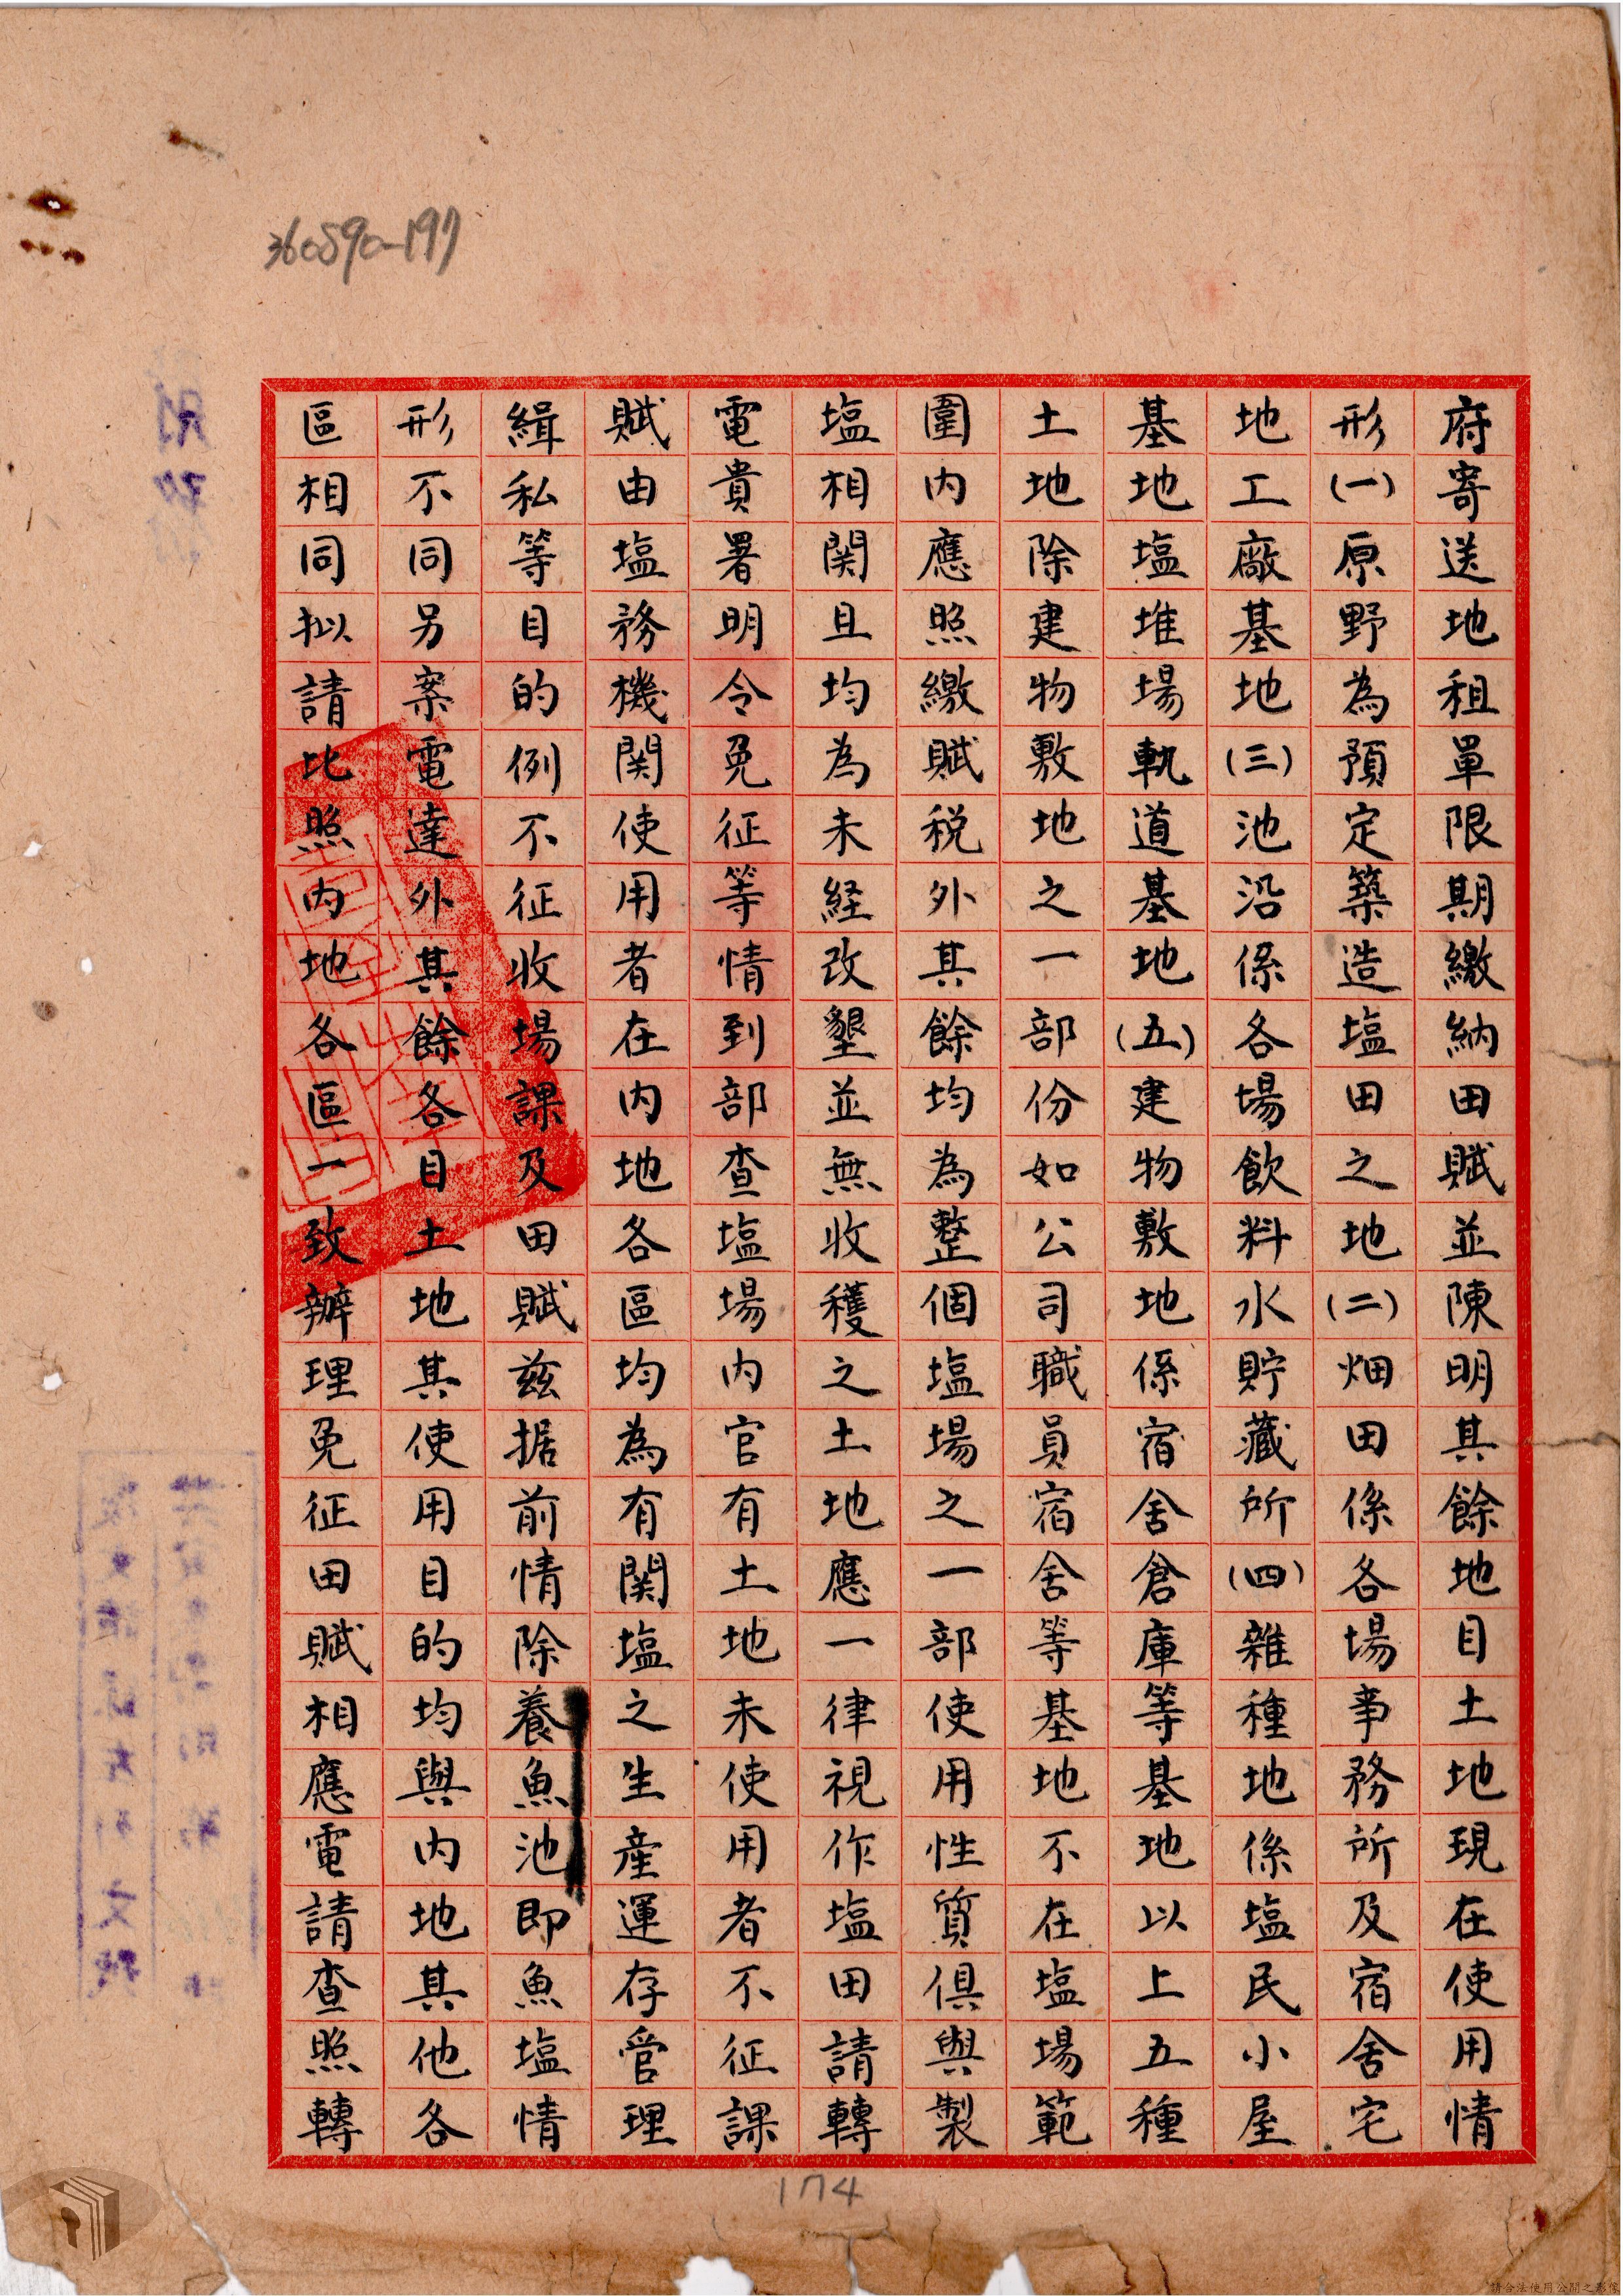 360590-197
府寄送地租單限期繳納田賦並陳明其餘地目土地現在使用情
形(一)原野為預定築造塩田之地(二)畑田係各場事務所及宿舍宅
地工廠基地(三)池沿係各場飲料水貯藏所(四)雜種地係塩民小屋
基地塩堆場軌道基地(五)建物敷地係宿舍倉庫等基地以上五種
土地除建物敷地之一部份如公司職員宿舍等基地不在塩場範
圍内應照繳賦税外其餘均為整個塩場之一部使用性質俱與製
塩相関且均為未経改墾並無收穫之土地應一律視作塩田請轉
電貴署明令免征等情到部查塩場内官有土地未使用者不征課
賦由塩務機関使用者在内地各區均為有関塩之生産運存管理
緝私等目的例不征收場課及田賦茲据前情除養魚池即魚塩情
形不同另案電達外其餘各目土地其使用目的均與内地其他各
區相同拟請比照内地各區一致辦理免征田賦相應電請查照轉
174
請合法使用公開之影像